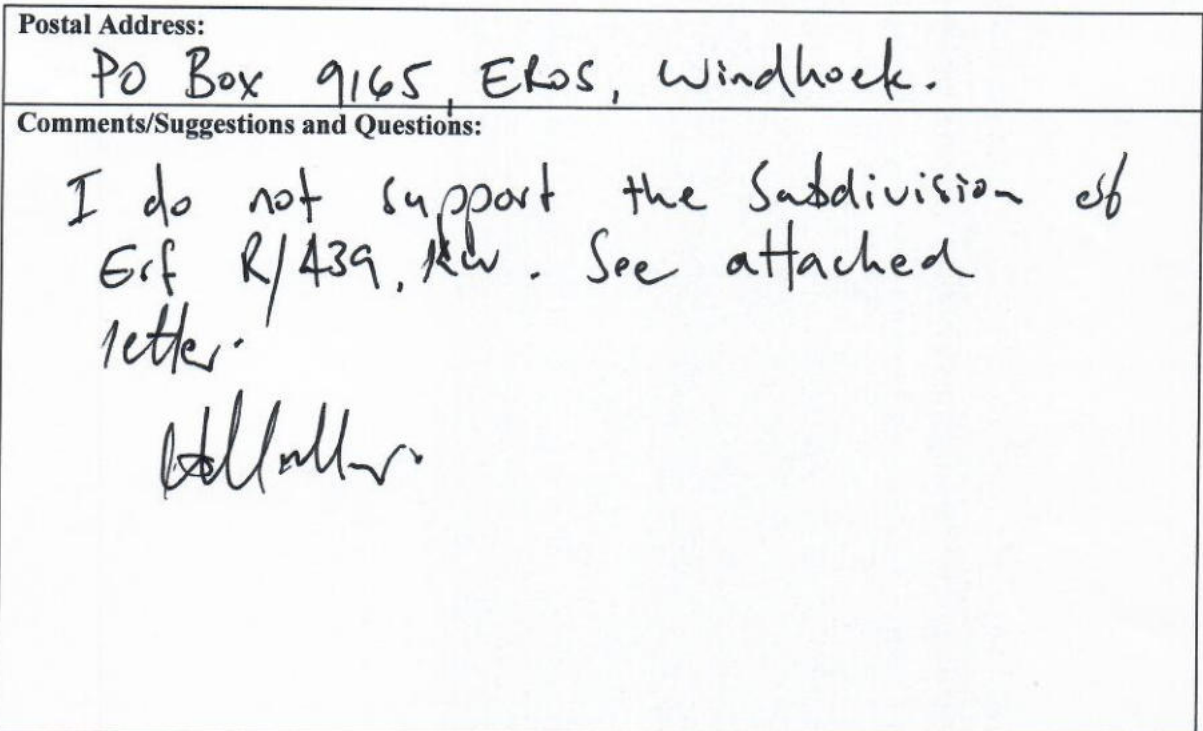 Postal Address:
PO Box 9165, EROS, Windhoek.
Comments/Suggestions and Questions:
I do not support the Subdivision of
Erf R/439, KW. See attached
letter.